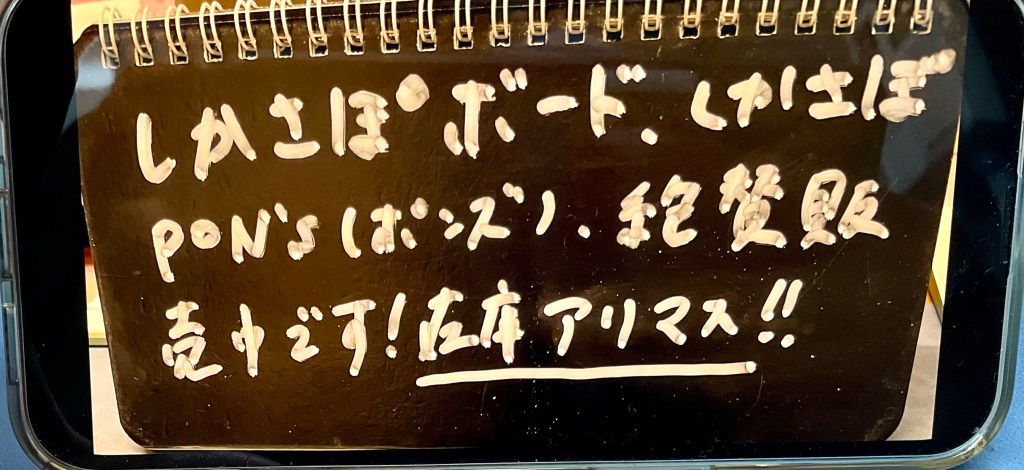 しかさぽボード、しかさぽ
PON's(ポンズ)、絶賛販
売中です!在庫アリマス!!